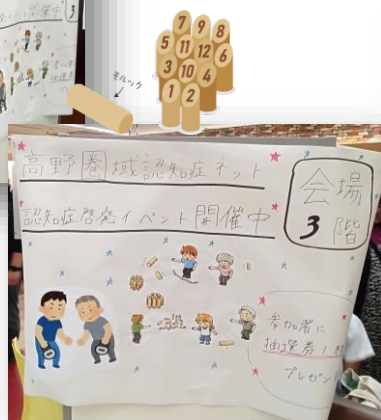 開催中
7 9 8
5 11 12 6
3 10 4
1 2
モルック
高野圏域認知症ネット
認知症啓発イベント開催中
会場
3階
参加者に
抽選券1
プレゼント